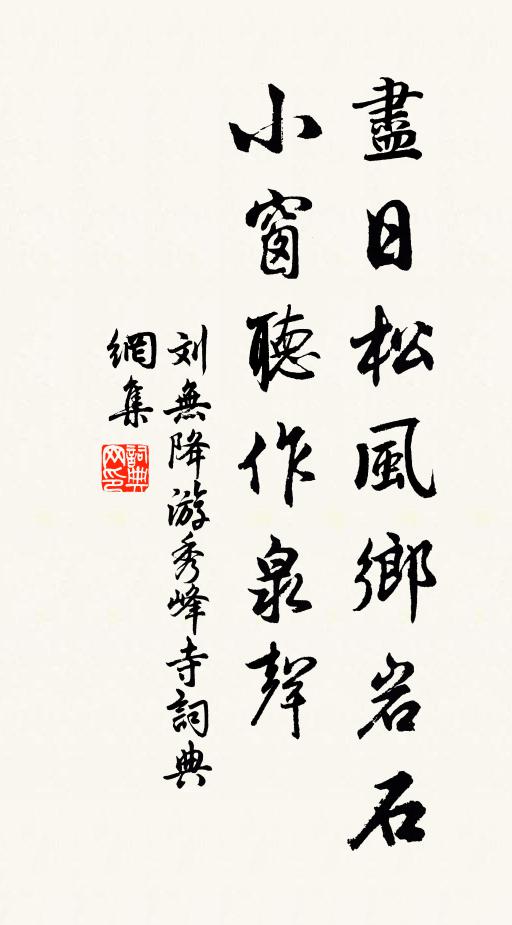 盡日松風鄉岩石
小窗聽作泉聲
刘無降游秀峰寺詞典
網集
詞典网印